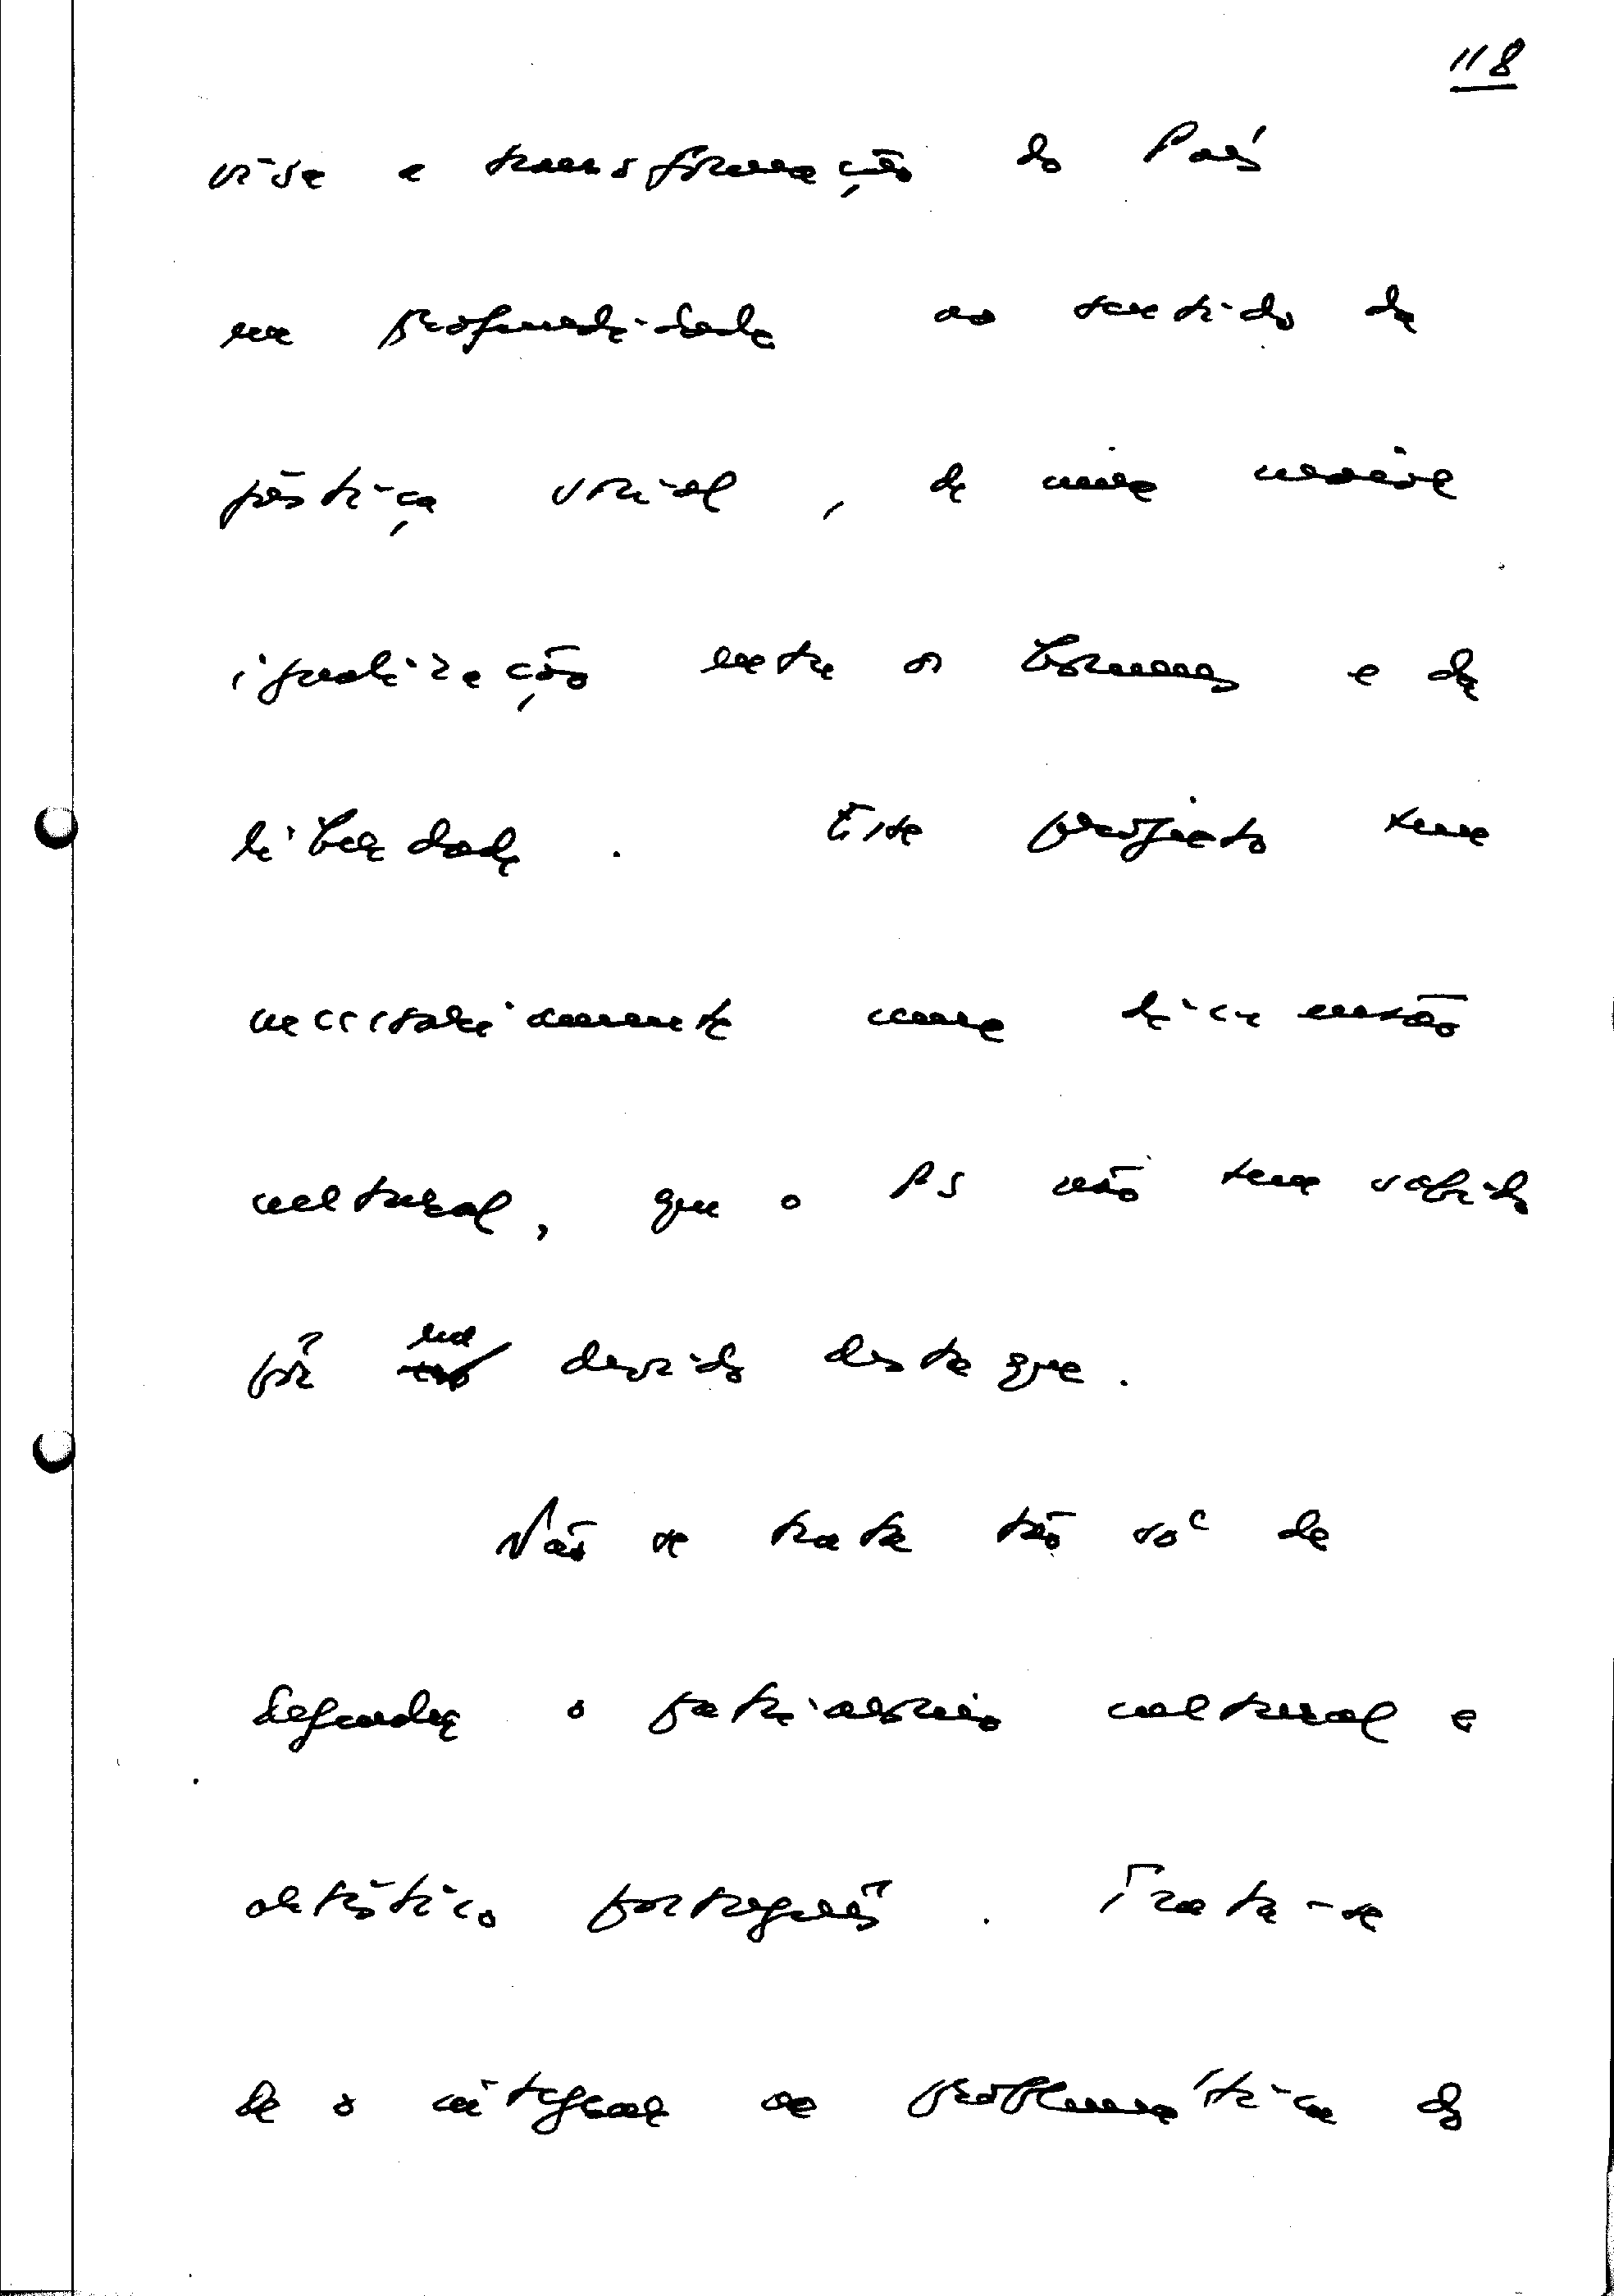 118
visa a transformação do País
em profundidade no sentido da
justiça social, de uma maior
igualização entre os homens e da
liberdade. Este projecto tem
necessariamente uma dimensão
cultural, que o PS não tem sabido
pôr em devido destaque.
Não se trata tão só de
defender o património cultural e
artístico português. Trata-se
de o integrar na problemática do